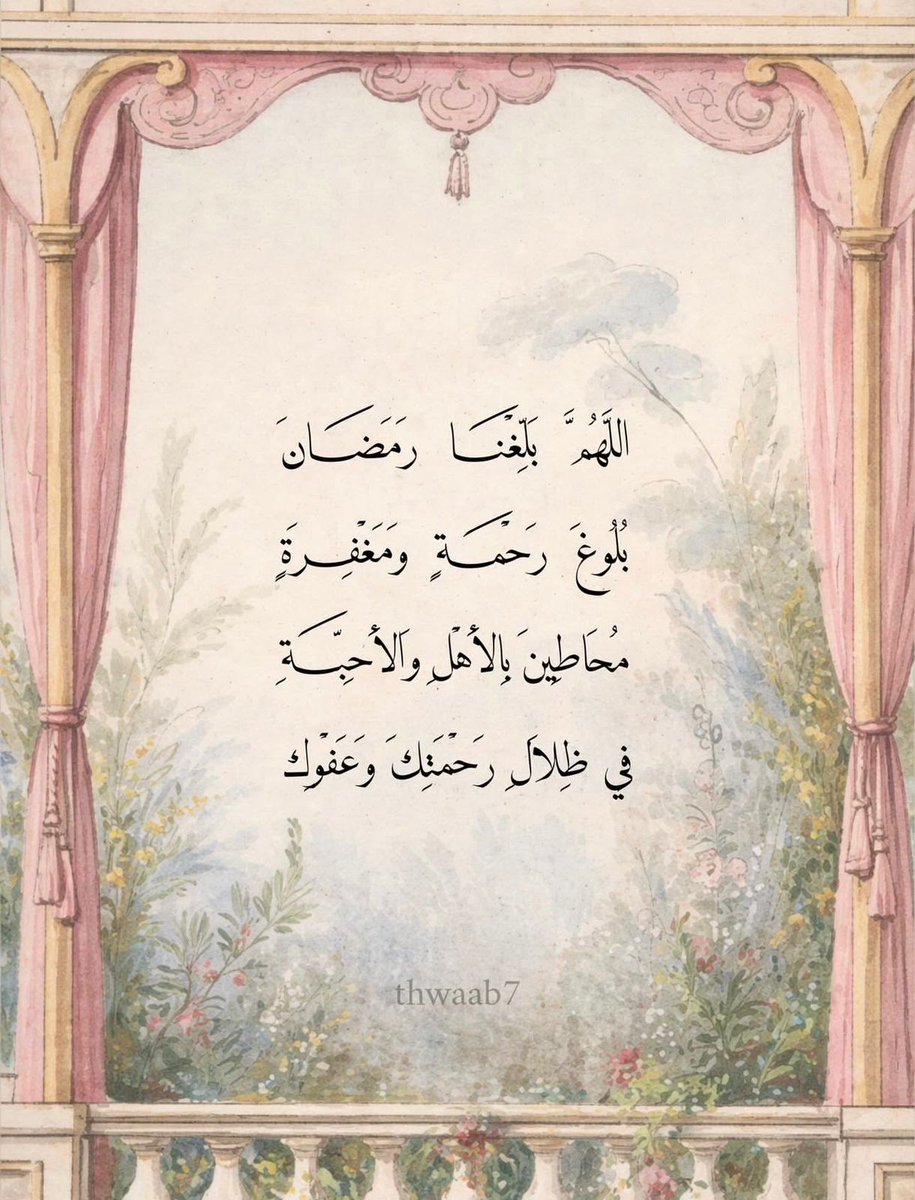 اللَّهُمَّ بَلِّغْنَا رَمَضَانَ
بُلُوغَ رَحْمَةٍ وَمَغْفِرَةٍ
مُحَاطِينَ بِالأَهْلِ وَالأَحِبَّةِ
فِي ظِلَالِ رَحْمَتِكَ وَعَفْوِكَ
thwaab7